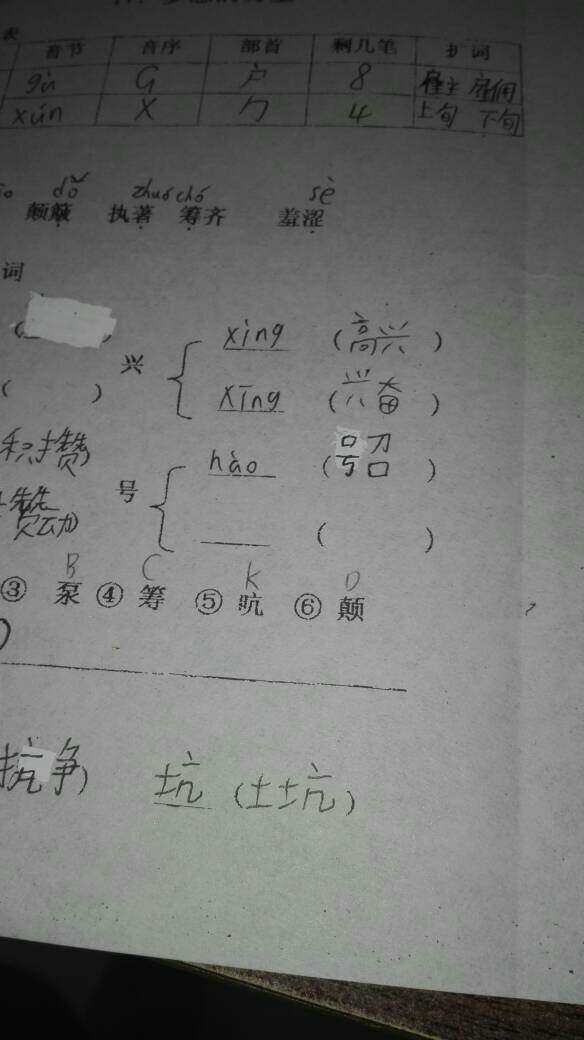 表
音节 音序 部首 剩几笔 扩词
gù G 户 8 雇主 雇佣
xún X 勹 4 上旬 下旬
dǒ zhuó chó sè
颠簸 执著 筹齐 羞涩
词
兴 xìng (高兴)
( ) xīng (兴奋)
积攒)
号 hào (号召)
攒动)
( )
B C K D
③ 泵 ④ 筹 ⑤ 吭 ⑥ 颠
)
抗争) 坑 (土坑)